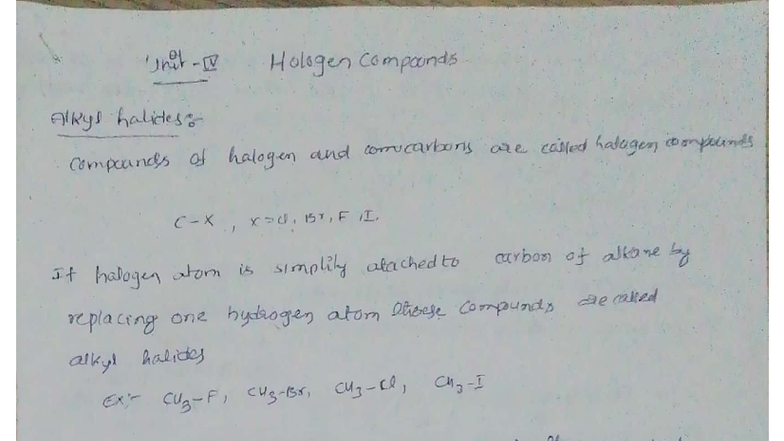 Unit-IV Halogen Compounds
Alkyl halides:-
Compounds of halogen and carbons are called halogen compounds
C-X, X=Cl, Br, F, I.
If halogen atom is simplily atached to carbon of alkane by
replacing one hydrogen atom these compounds are called
alkyl halides
Ex:- CH3-F, CH3-Br, CH3-Cl, CH3-I